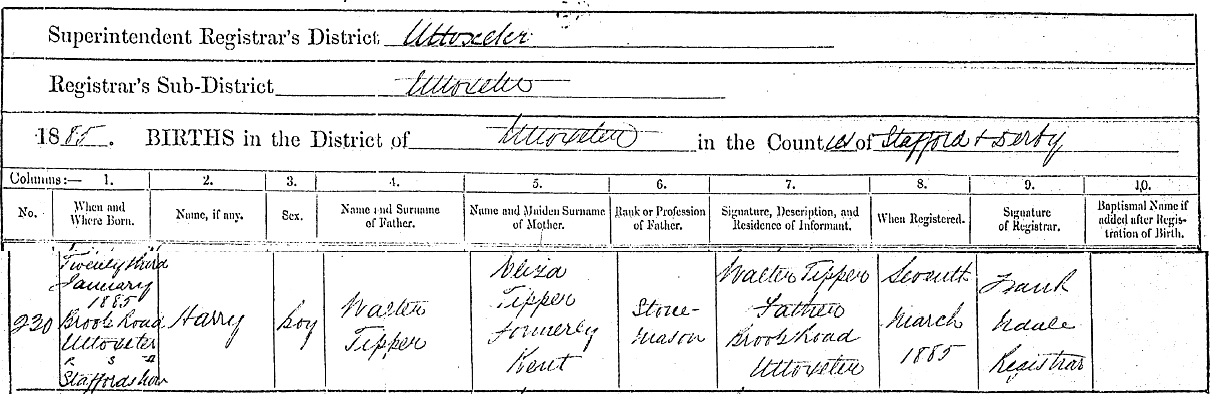 Superintendent Registrar's District Uttoxeter
Registrar's Sub-District Uttoxeter
1885. BIRTHS in the District of Uttoxeter in the Counties of Stafford & Derby
Columns:— 1. 2. 3. 4. 5. 6. 7. 8. 9. 10.
No.
When and
Where Born.
Name, if any.
Sex.
Name and Surname
of Father.
Name and Maiden Surname
of Mother.
Rank or Profession
of Father.
Signature, Description, and
Residence of Informant.
When Registered.
Signature
of Registrar.
Baptismal Name if
added after Regis-
tration of Birth.
230
Twenty third
January
1885
Brook Road
Uttoxeter
Staffordshire
Harry
boy
Walter
Tipper
Eliza
Tipper
formerly
Kent
Stone-
mason
Walter Tipper
Father
Brook Road
Uttoxeter
Seventh
March
1885
Frank
Registrar